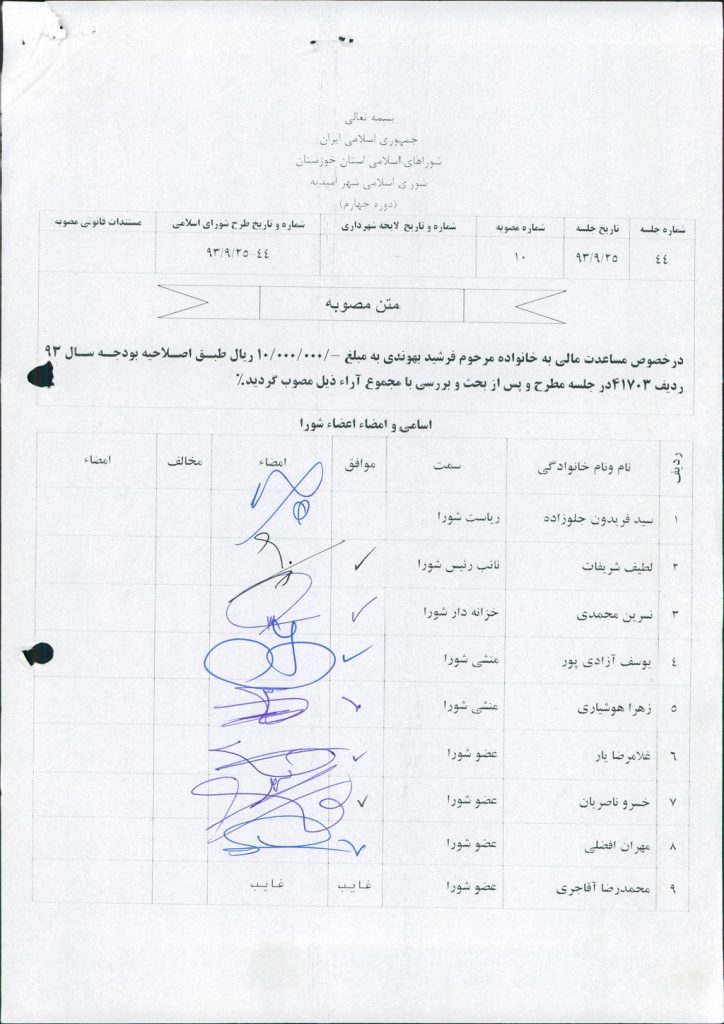 بسمه تعالی
جمهوری اسلامی ایران
شوراهای اسلامی استان خوزستان
شورای اسلامی شهر امیدیه
(دوره چهارم)
شماره جلسه تاریخ جلسه شماره مصوبه شماره و تاریخ لایحه شهرداری شماره و تاریخ طرح شورای اسلامی مستندات قانونی مصوبه
۴۴ ۹۳/۹/۲۵ ۱۰ - ۹۳/۹/۲۵-۴۴
متن مصوبه
درخصوص مساعدت مالی به خانواده مرحوم فرشید بهوندی به مبلغ -/۱۰/۰۰۰/۰۰۰ ریال طبق اصلاحیه بودجه سال ۹۳
ردیف ۴۱۷۰۳در جلسه مطرح و پس از بحث و بررسی با مجموع آراء ذیل مصوب گردید.٪
اسامی و امضاء اعضاء شورا
ردیف نام ونام خانوادگی سمت موافق امضاء مخالف امضاء
۱ سید فریدون جلوزاده ریاست شورا
۲ لطیف شریفات نائب رئیس شورا
۳ نسرین محمدی خزانه دار شورا
۴ یوسف آزادی پور منشی شورا
۵ زهرا هوشیاری منشی شورا
۶ غلامرضا یار عضو شورا
۷ خسرو ناصریان عضو شورا
۸ مهران افضلی عضو شورا
۹ محمدرضا آقاجری عضو شورا غایب غایب